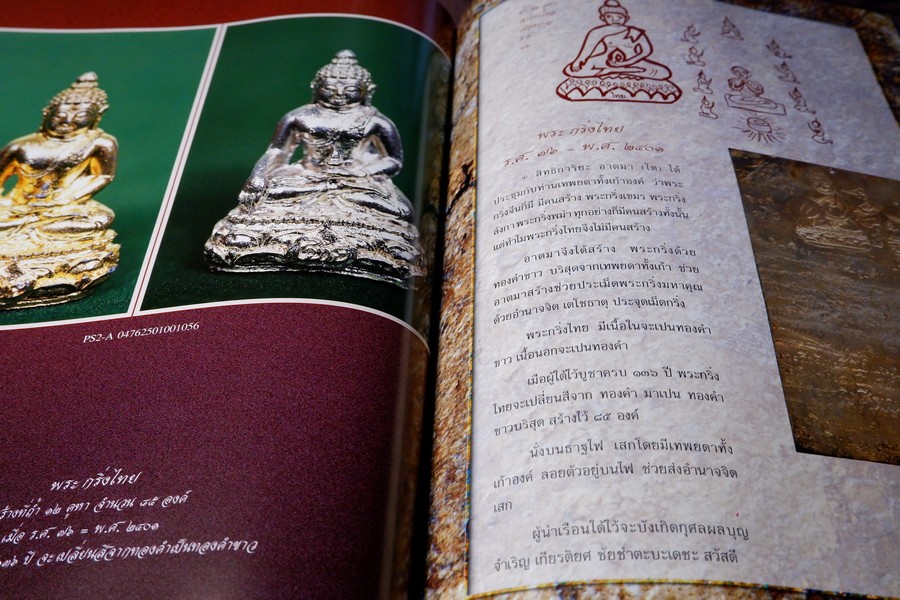 PS2-A 04762501001056
พระ กริ่งไทย
สร้างที่ถ้ำ ๑๒ คูหา จำนวน ๘๕ องค์
เมื่อ ร.ศ. ๗๖ = พ.ศ. ๒๔๐๑
๑๓๖ ปี จะเปลี่ยนสีจากทองคำเป็นทองคำขาว
ไทย
พระ กริ่งไทย
ร.ศ. ๗๖ = พ.ศ. ๒๔๐๑
สิทธิการิยะ อาตมา (โต) ได้
ประชุมกับท่านเทพยดาทั้งเก้าองค์ ว่าพระ
กริ่งจีนก็มี มีคนสร้าง พระกริ่งเขมร พระกริ่ง
ลังกา พระกริ่งพม่า ทุกอย่างก็มีคนสร้างทั้งนั้น
แต่ทำไมพระกริ่งไทยจึงไม่มีคนสร้าง
อาตมาจึงได้สร้าง พระกริ่งด้วย
ทองคำขาว บริสุดจากเทพยดาทั้งเก้า ช่วย
อาตมาสร้างช่วยประเม็ดพระกริ่งมหาคุณ
ด้วยอำนาจจิต เตโชธาตุ ประจุดเม็ดกริ่ง
พระกริ่งไทย มีเนื้อในจะเปนทองคำ
ขาว เนื้อนอกจะเปนทองคำ
เมื่อผู้ได้ไว้บูชาครบ ๑๓๖ ปี พระกริ่ง
ไทยจะเปลี่ยนสีจาก ทองคำ มาเปน ทองคำ
ขาวบริสุด สร้างไว้ ๘๕ องค์
นั่งบนธาฐไฟ เสกโดยมีเทพยดาทั้ง
เก้าองค์ ลอยตัวอยู่บนไฟ ช่วยส่งอำนาจจิต
เสก
ผู้นำเรือนได้ไว้จะบังเกิดกุศลผลบุญ
จำเริญ เกียรติยศ ชัยชำตะบะเดชะ สวัสดี